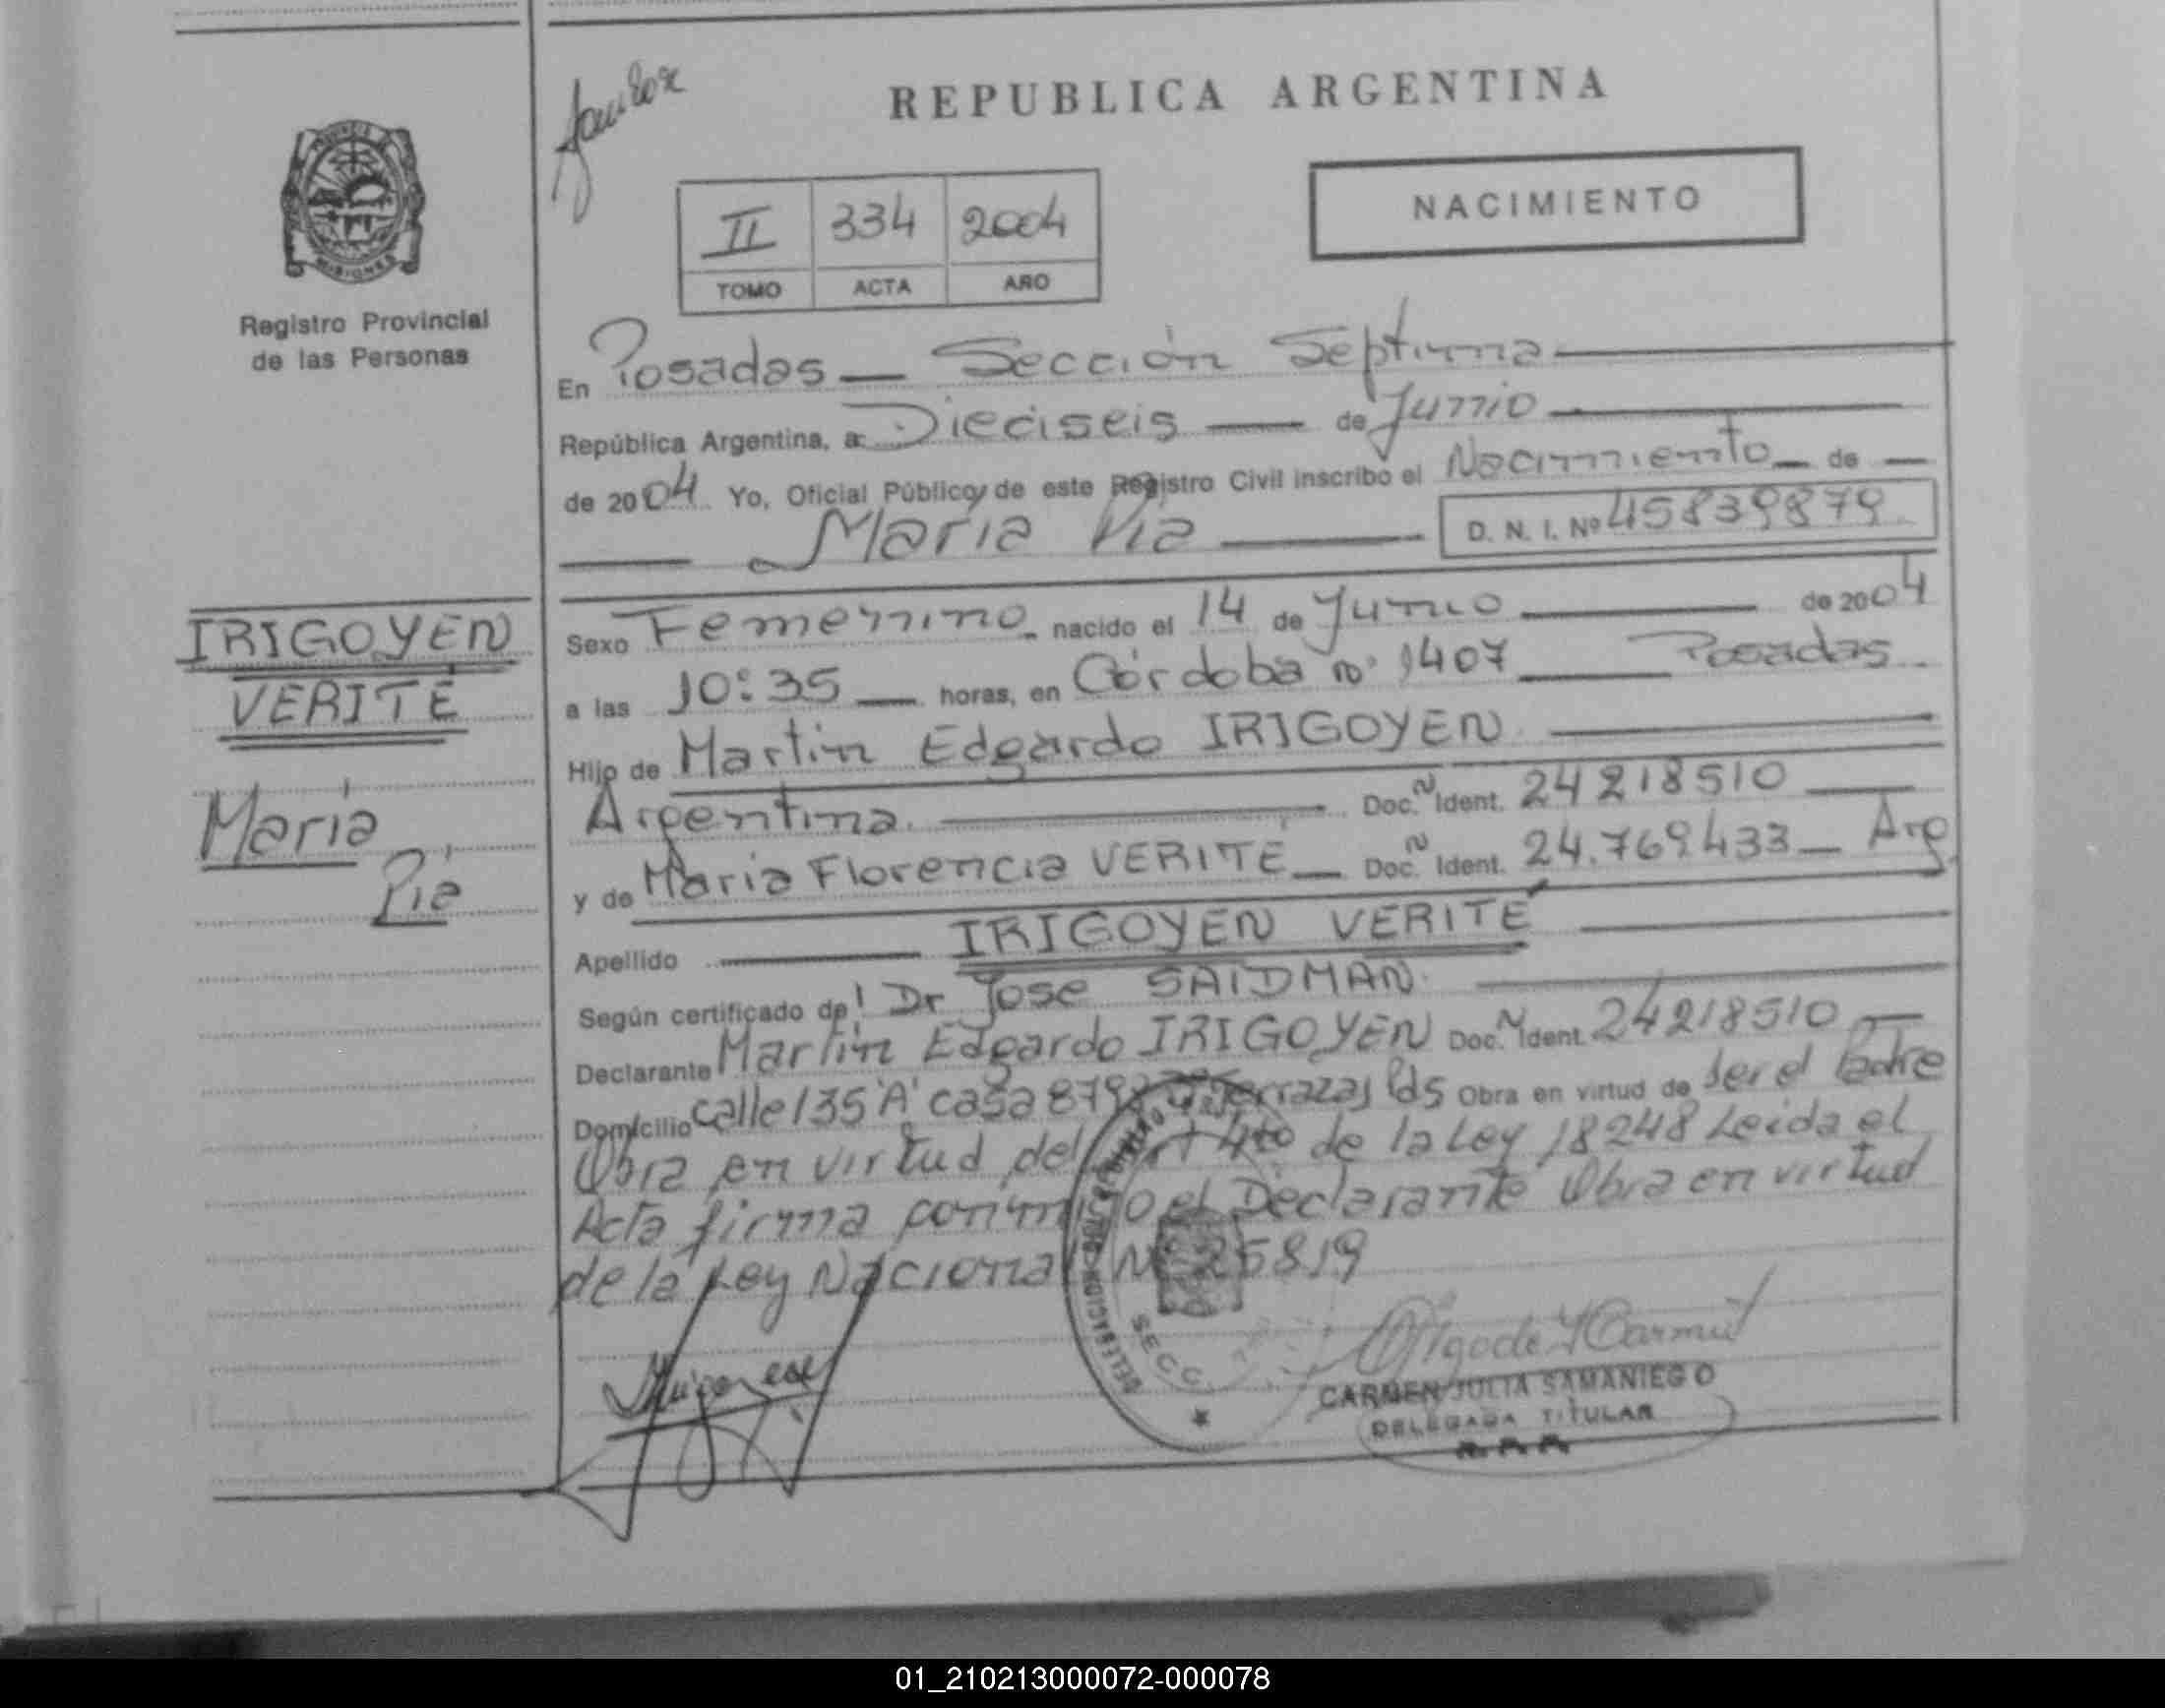 REPUBLICA ARGENTINA
NACIMIENTO
II 334 2004
TOMO ACTA AÑO
MISIONES
Registro Provincial
de las Personas
En Posadas — Sección Septima
República Argentina, a: Dieciseis — de Junio
de 2004 Yo, Oficial Público, de este Registro Civil inscribo el Nacimiento — de —
Maria Pia D. N. I. Nº 45839879
IRIGOYEN
VERITÉ
Maria
Pia
Sexo Femenino nacido el 14 de Junio de 2004
a las 10:35 — horas, en Córdoba nº 1407 — Posadas
Hijo de Martin Edgardo IRIGOYEN
Argentina. Doc. N Ident. 24218510
y de Maria Florencia VERITÉ — Doc. N Ident. 24.769.433 — Arg
Apellido IRIGOYEN VERITÉ
Según certificado de! Dr Jose SAIDMAN
Declarante Martin Edgardo IRIGOYEN Doc. N Ident. 24218510
Domicilio calle 135 'A' casa Terrazas Pds Obra en virtud de Ser el Padre
Obra en virtud del Art 4to de la Ley 18248 Leida el
Acta firma conmigo el Declarante Obra en virtud
de la Ley Nacional Nº 25819
SECC.
CARMEN JULIA SAMANIEGO
DELEGADA TITULAR
R. P. P.
01_210213000072-000078